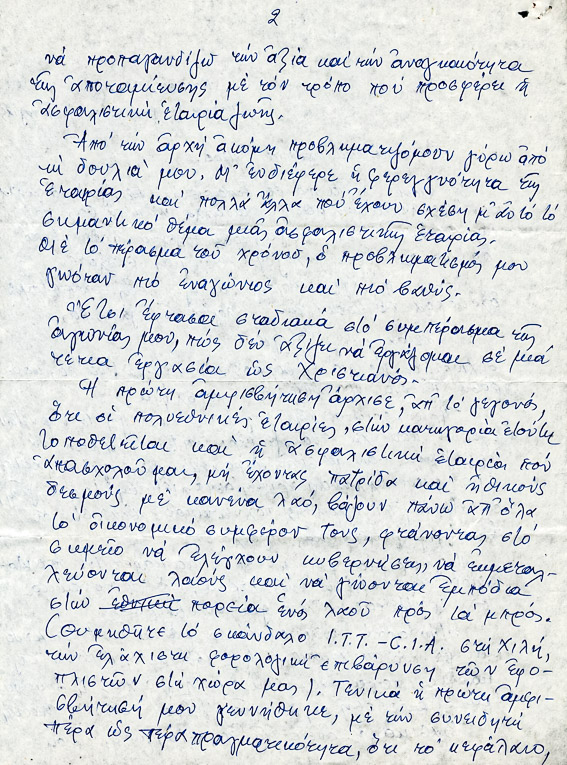 2
νά προπαγανδίζω τήν ἀξία καί τήν ἀναγκαιότητα
τῆς ἀποταμίευσης μέ τόν τρόπο πού προσφέρει ἡ
ἀσφαλιστική ἑταιρία ζωῆς.
Ἀπό τήν ἀρχή ἀκόμη προβληματιζόμουν γύρω ἀπό
τή δουλιά μου. Μ' ἐνδιέφερε ἡ φερεγγυότητα τῆς
Ἑταιρίας καί πολλά ἄλλα πού ἔχουν σχέση μ' αὐτό τό
σημαντικό θέμα μιᾶς ἀσφαλιστικῆς ἑταιρίας.
Μέ τό πέρασμα τοῦ χρόνου, ὁ προβληματισμός μου
γινόταν πιό ἐναγώνιος καί πιό βαθύς.
Ἔτσι ἔφτασα σταδιακά στό συμπέρασμα τῆς
ἀγωνίας μου, πώς δέν ἀξίζει νά ἐργάζομαι σέ μιά
τέτια ἐργασία ὡς Χριστιανός.
Ἡ πρώτη ἀμφισβήτηση ἄρχισε, ἀπ' τό γεγονός,
ὅτι οἱ πολυεθνικές ἑταιρίες, στήν κατηγορία ἐτούτη
τοποθετεῖται καί ἡ ἀσφαλιστική ἑταιρία πού
ἀπασχολοῦμαι, μή ἔχοντας πατρίδα καί ἠθικούς
δεσμούς μέ κανένα λαό, βάζουν πάνω ἀπ' ὅλα
τό οἰκονομικό συμφέρον τους, φτάνοντας στό
σημεῖο νά ἐλέγχουν κυβερνήσεις, νά ἐκμεταλ-
λεύονται λαούς καί νά γίνονται ἐμπόδια
στήν ἐθνική πορεία ἑνός λαοῦ πρός τά μπρός.
(Θυμηθῆτε τό σκάνδαλο Ι.Τ.Τ.-C.I.A. στή Χιλή,
τήν ἐλάχιστη φορολογική ἐπιβάρυνση τῶν ἐφο-
πλιστῶν στή χώρα μας). Γενικά ἡ πρώτη ἀμφι-
σβήτησή μου γεννήθηκε, μέ τήν συνειδητή
πέρα ὡς πέρα πραγματικότητα, ὅτι τό κεφάλαιο,